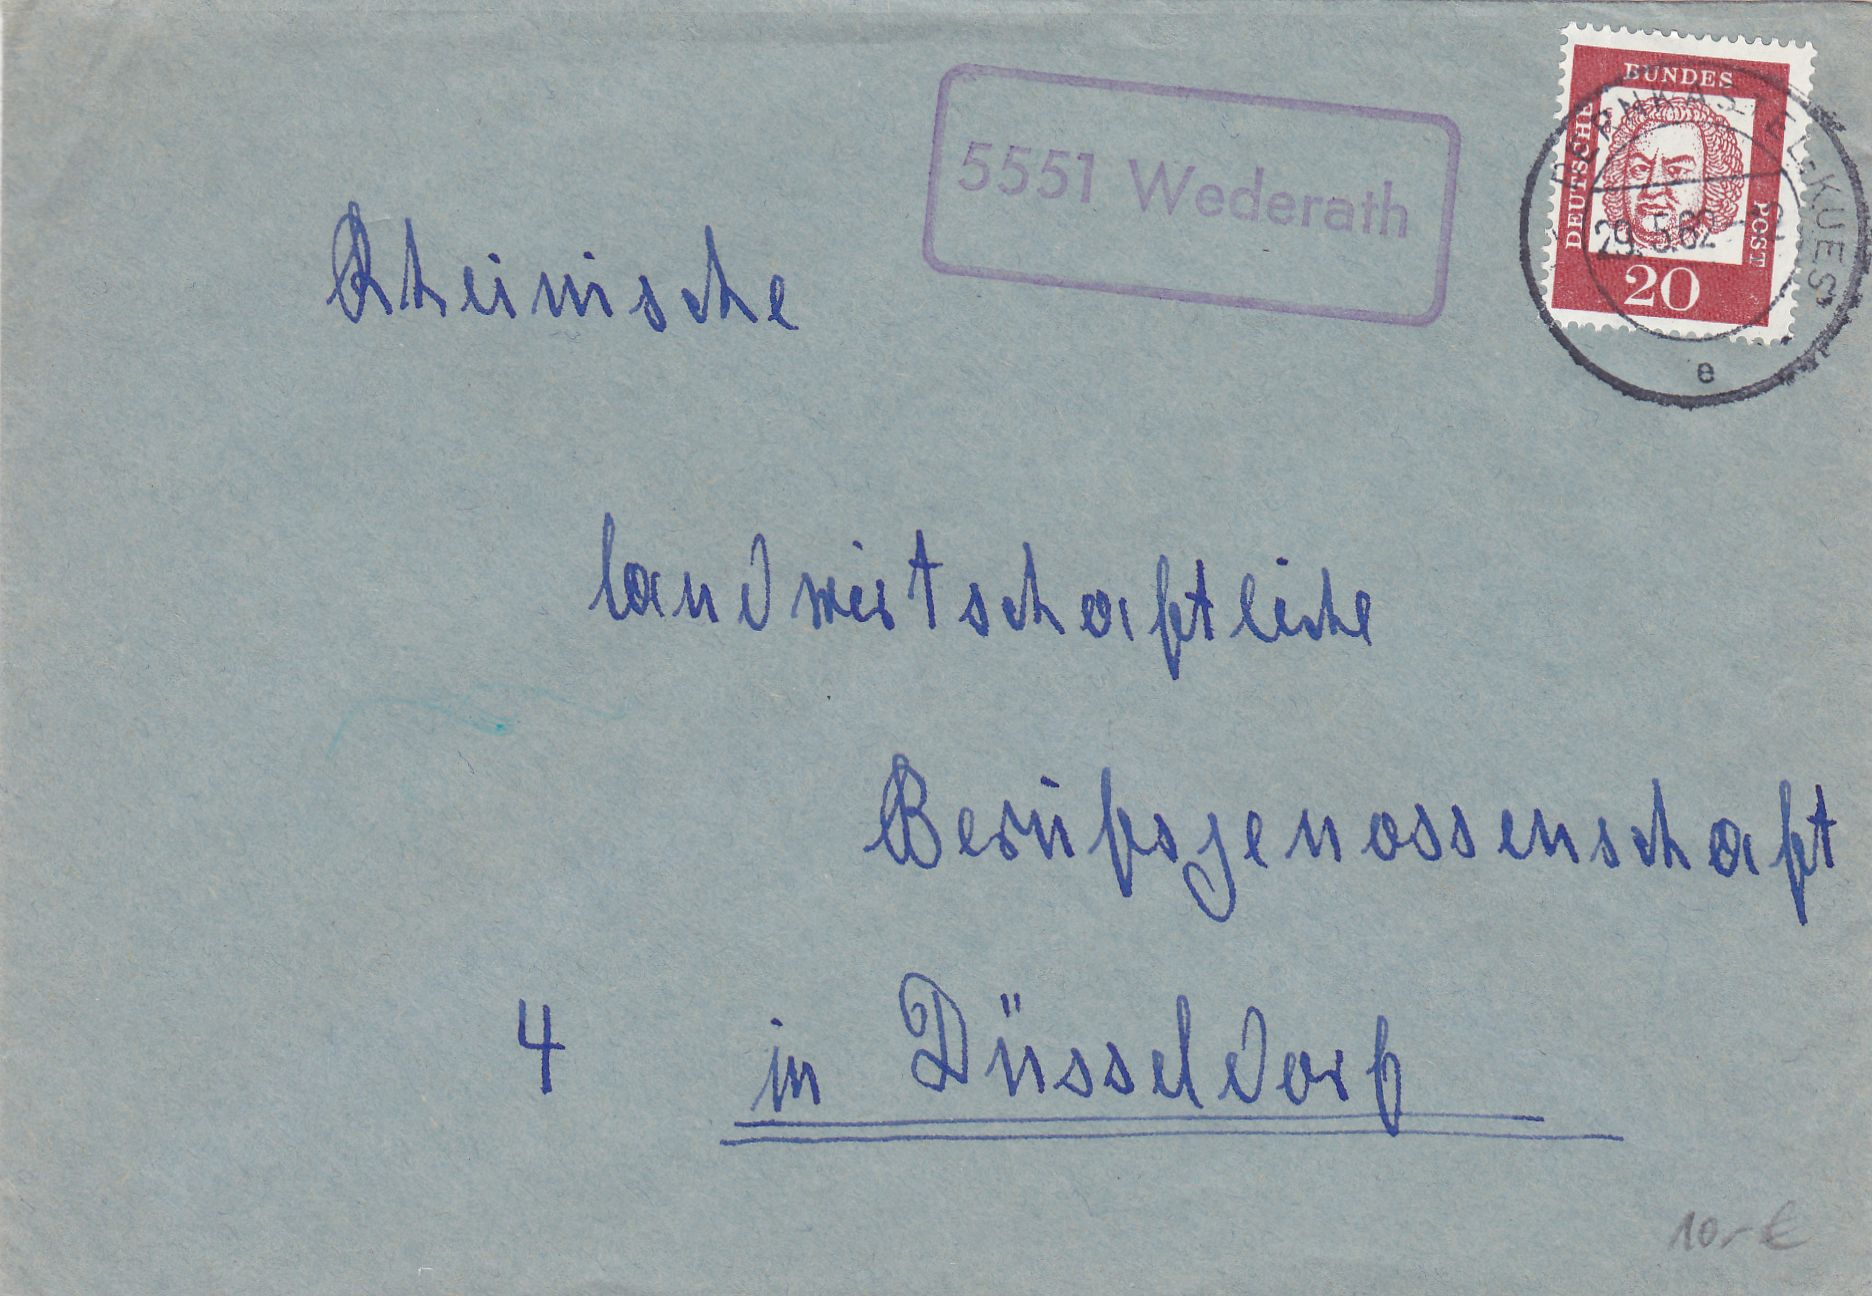 5551 Wederath
BUNDES
DEUTSCHE
POST
20
BERNKASTEL-KUES
29.5.62 -12
e
Rheinische
landwirtschaftliche
Berufsgenossenschaft
4 in Düsseldorf
10,- €